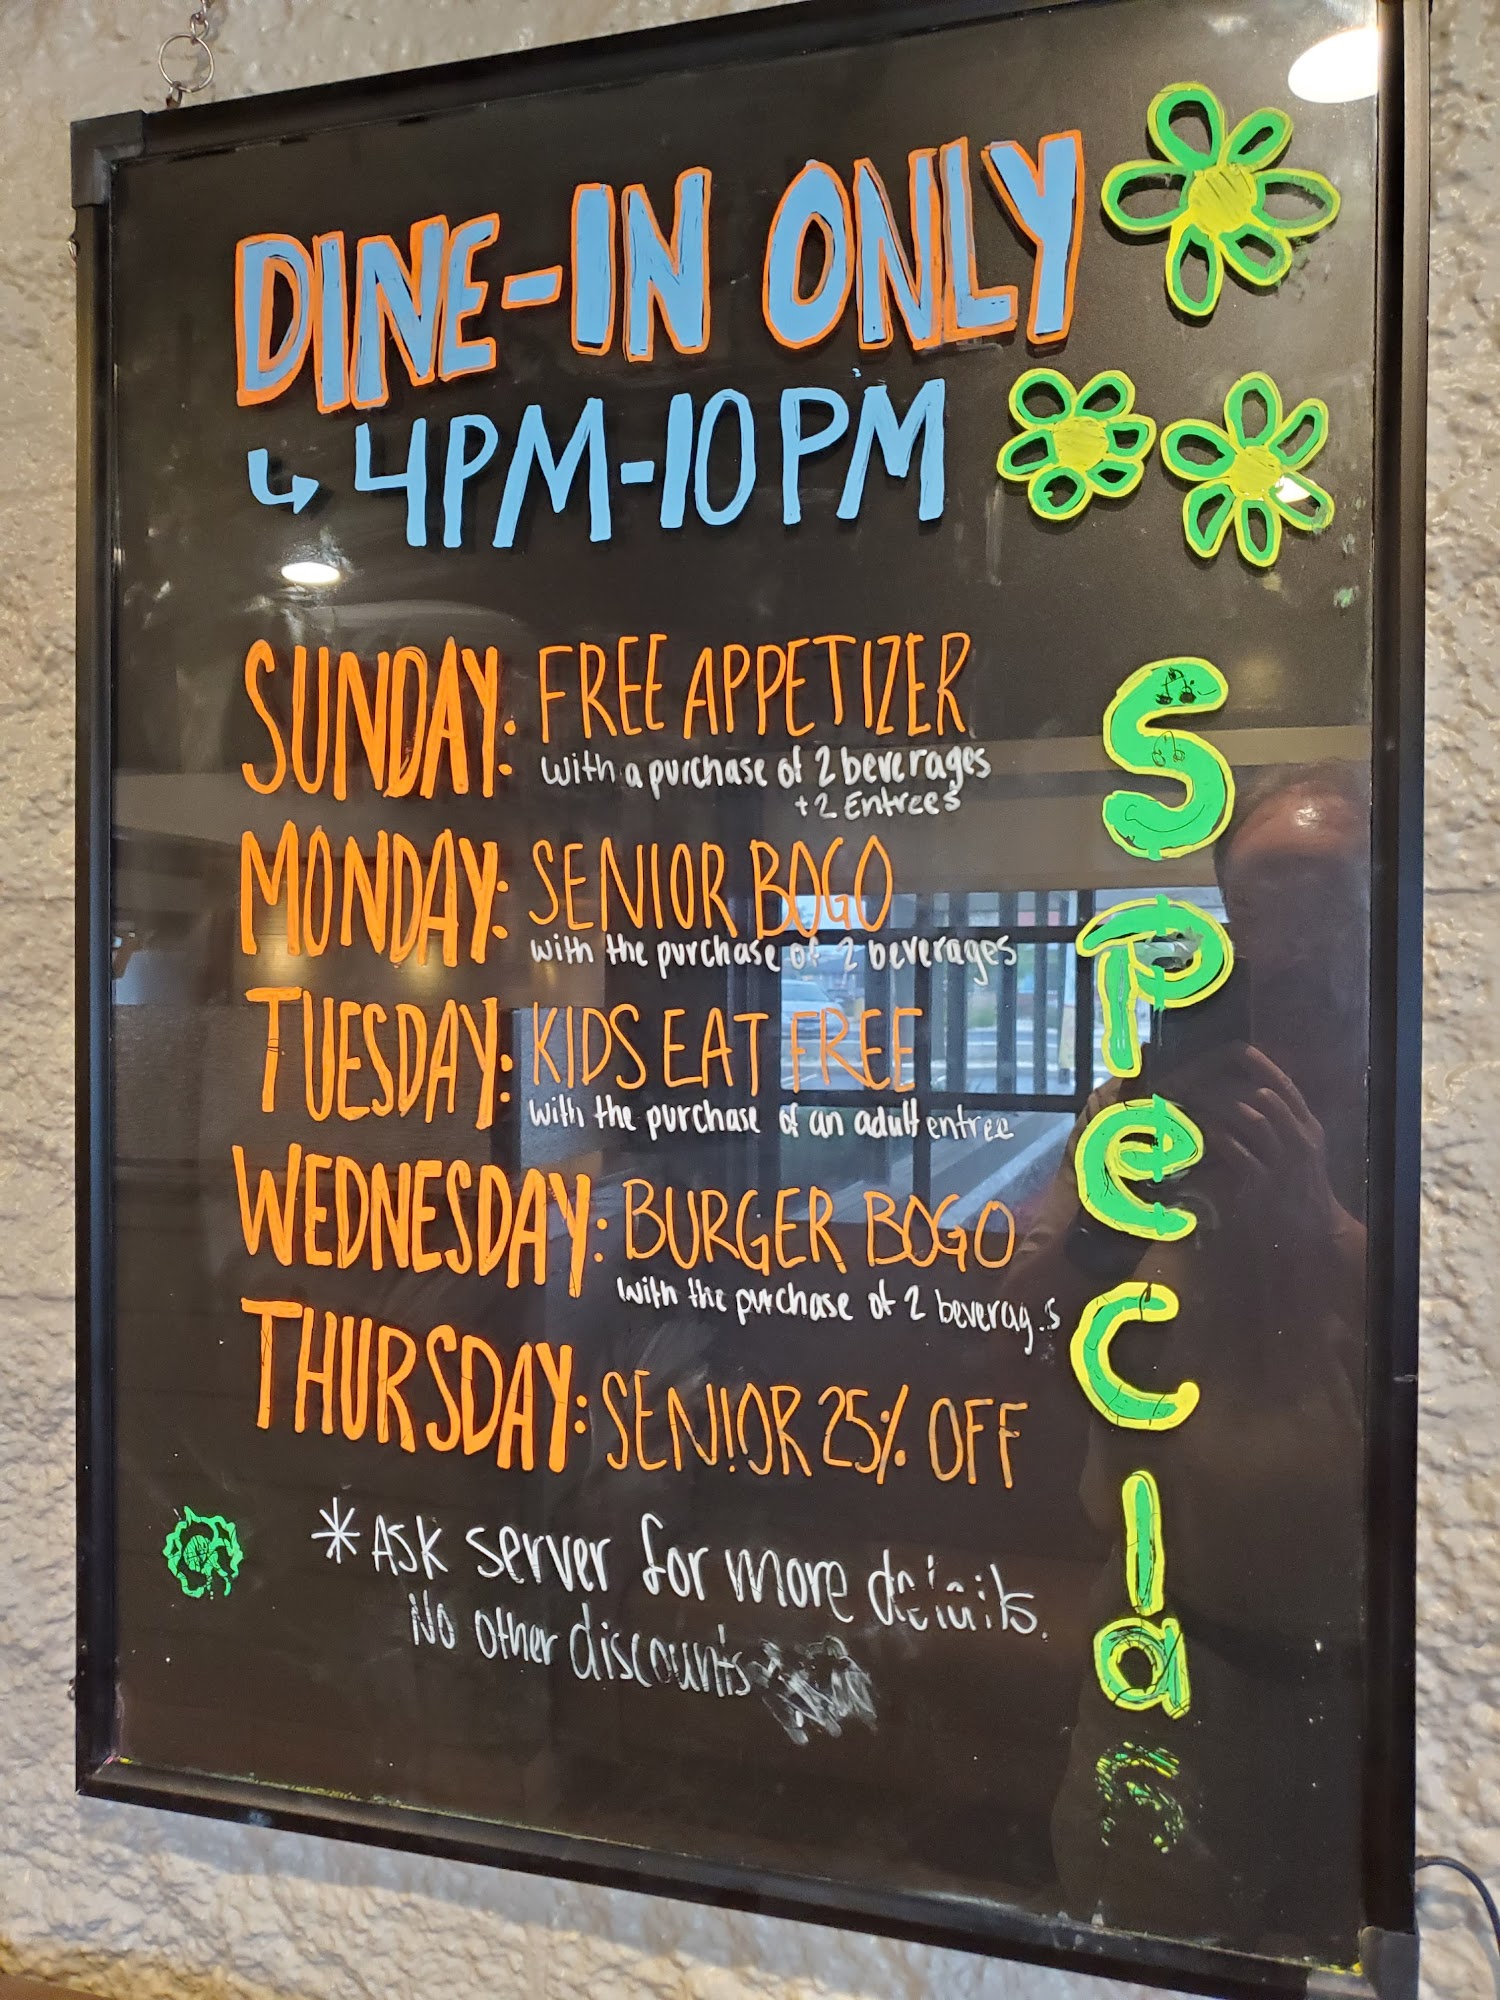 DINE-IN ONLY
↳ 4PM-10PM
SUNDAY: FREE APPETIZER
with a purchase of 2 beverages
+ 2 Entrees
MONDAY: SENIOR BOGO
with the purchase of 2 beverages
TUESDAY: KIDS EAT FREE
with the purchase of an adult entree
WEDNESDAY: BURGER BOGO
with the purchase of 2 beverag s
THURSDAY: SENIOR 25% OFF
*Ask server for more details.
No other discounts
SPeCIals